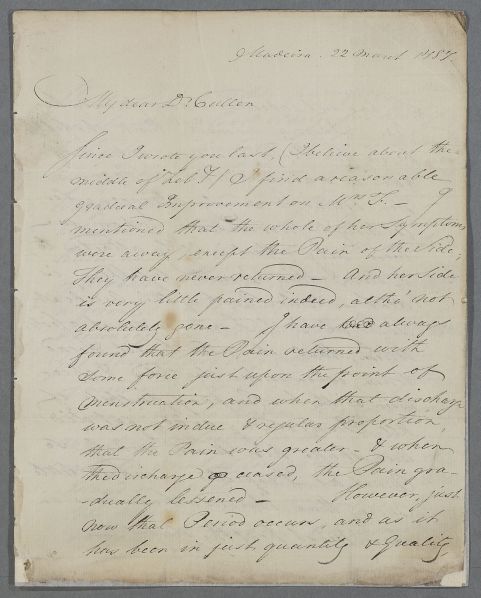 Madeira. 22 March 1787.
My dear Dr Cullen
Since I wrote you last, (I believe about the
middle of Feb.y) I find a reasonable
gradual Improvement on Mrs F. - I
mentioned that the whole of her Symptoms
were away, except the Pain of the Side;
They have never returned - And her Side
is very little pained indeed, altho' not
absolutely gone - I have always
found that the Pain returned with
some force just upon the point of
menstruation, and when that discharge
was not in due & regular proportion,
that the Pain was greater - & when
the discharge ceased, the Pain gra-
-dually lessened - However, just
now that Period occurs, and as it
has been in just quantity & Quality